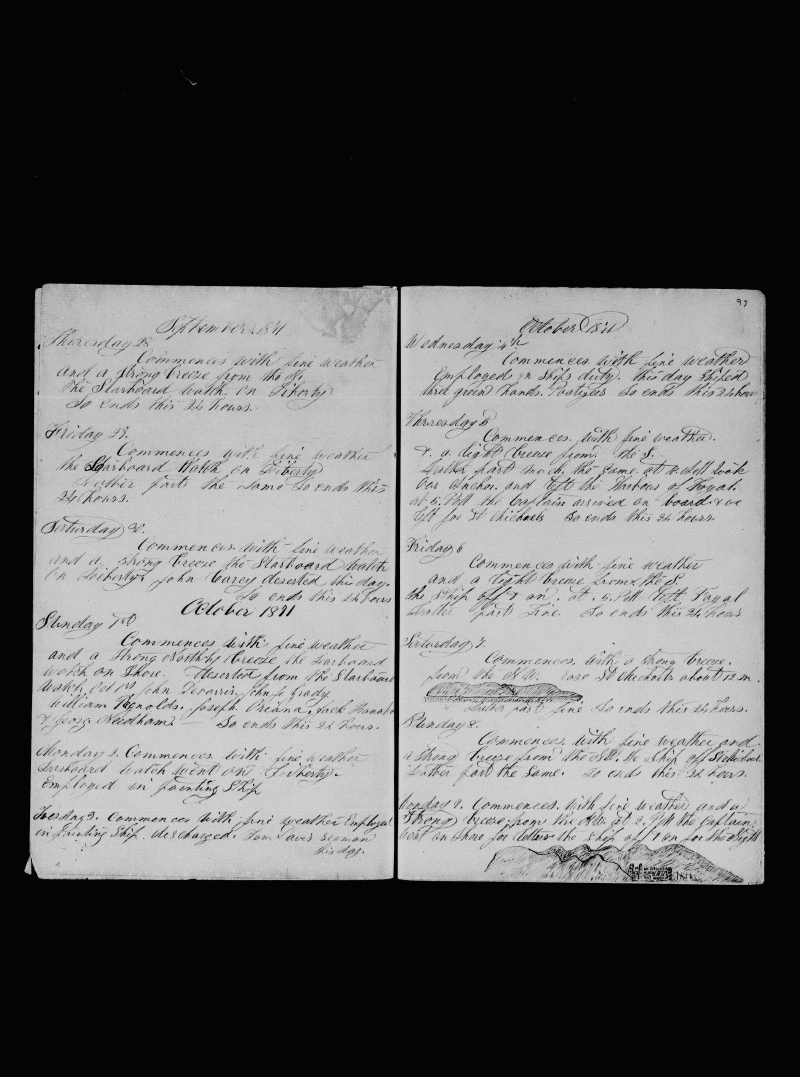 September 1871
Thursday 28.
Commences with fine weather
and a strong breeze from the
the Starboard watch on Liberty
So ends this 24 hours.
Friday 29.
Commences with fine weather
the Starboard Watch on Liberty
parts the same So ends this
24 hours.
Saturday 30.
Commences with fine weather
and a strong breeze the Starboard Watch
on Liberty John Carey deserted this day.
So ends this 24 hours
October 1871
Sunday 1st
Commences with fine weather
and a strong breeze the Larboard
watch on Shore. Deserted from the Starboard
Watch Oct 1st John John Grady.
William Reynolds. Joseph Jack
& Geo Needham So ends this 24 hours.
Monday 2. Commences with fine weather
Larboard watch went on Liberty.
Employed in painting Ship
Tuesday 3. Commences with fine weather Employed
in painting Ship. discharged Tom Davis seaman
this day.
97
October 1871
Wednesday 4th
Commences with fine weather
Employed on Ships duty. this day Shiped
three green hands. So ends this 24 hours
Thursday 5
Commences with fine weather.
& a light breeze from the S.
Latter part much the same at took
our Anchor and left the Harbour of Foyal.
at 5. P.M the Captain arrived on board & we
left for St Michaels So ends this 24 hours.
Friday 6
Commences with fine weather
and a light breeze from the S.
the Ship off & on at 5. P.M left Fayal
Latter part Fine So ends this 24 hours
Saturday 7.
Commences with a strong breeze.
from the rose St Michaels about 12 m.
Latter part fine So ends this 24 hours.
Sunday 8.
Commences with fine weather and
a strong breeze from the the Ship off St Michaels
Latter part the Same. So ends this 24 hours.
Monday 9. Commences with fine weather and a
Strong breeze from the at 2. P.M the Captain
went on shore for the Ship off & on for the Night